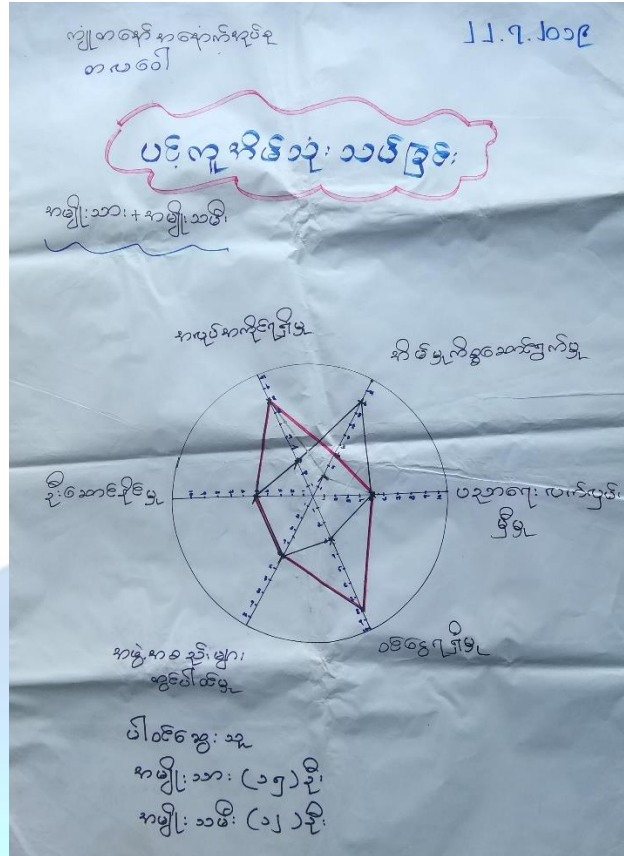 ကျုံတနော်အနောက်အုပ်စု
တလဝေါ
၂၂.၇.၂၀၁၉
ပင့်ကူအိမ်သုံးသပ်ခြင်း
အမျိုးသား+အမျိုးသမီး
အလုပ်အကိုင်ရရှိမှု
အိမ်မှုကိစ္စဆောင်ရွက်မှု
ဦးဆောင်နိုင်မှု
ပညာရေး လက်လှမ်း
မှီမှု
ဝင်ငွေရရှိမှု
အဖွဲ့အစည်းများ
တွင်ပါဝင်မှု
ပါဝင်ဆွေးသူ
အမျိုးသား (၁၅) ဦး
အမျိုးသမီး (၁၂) ဦး